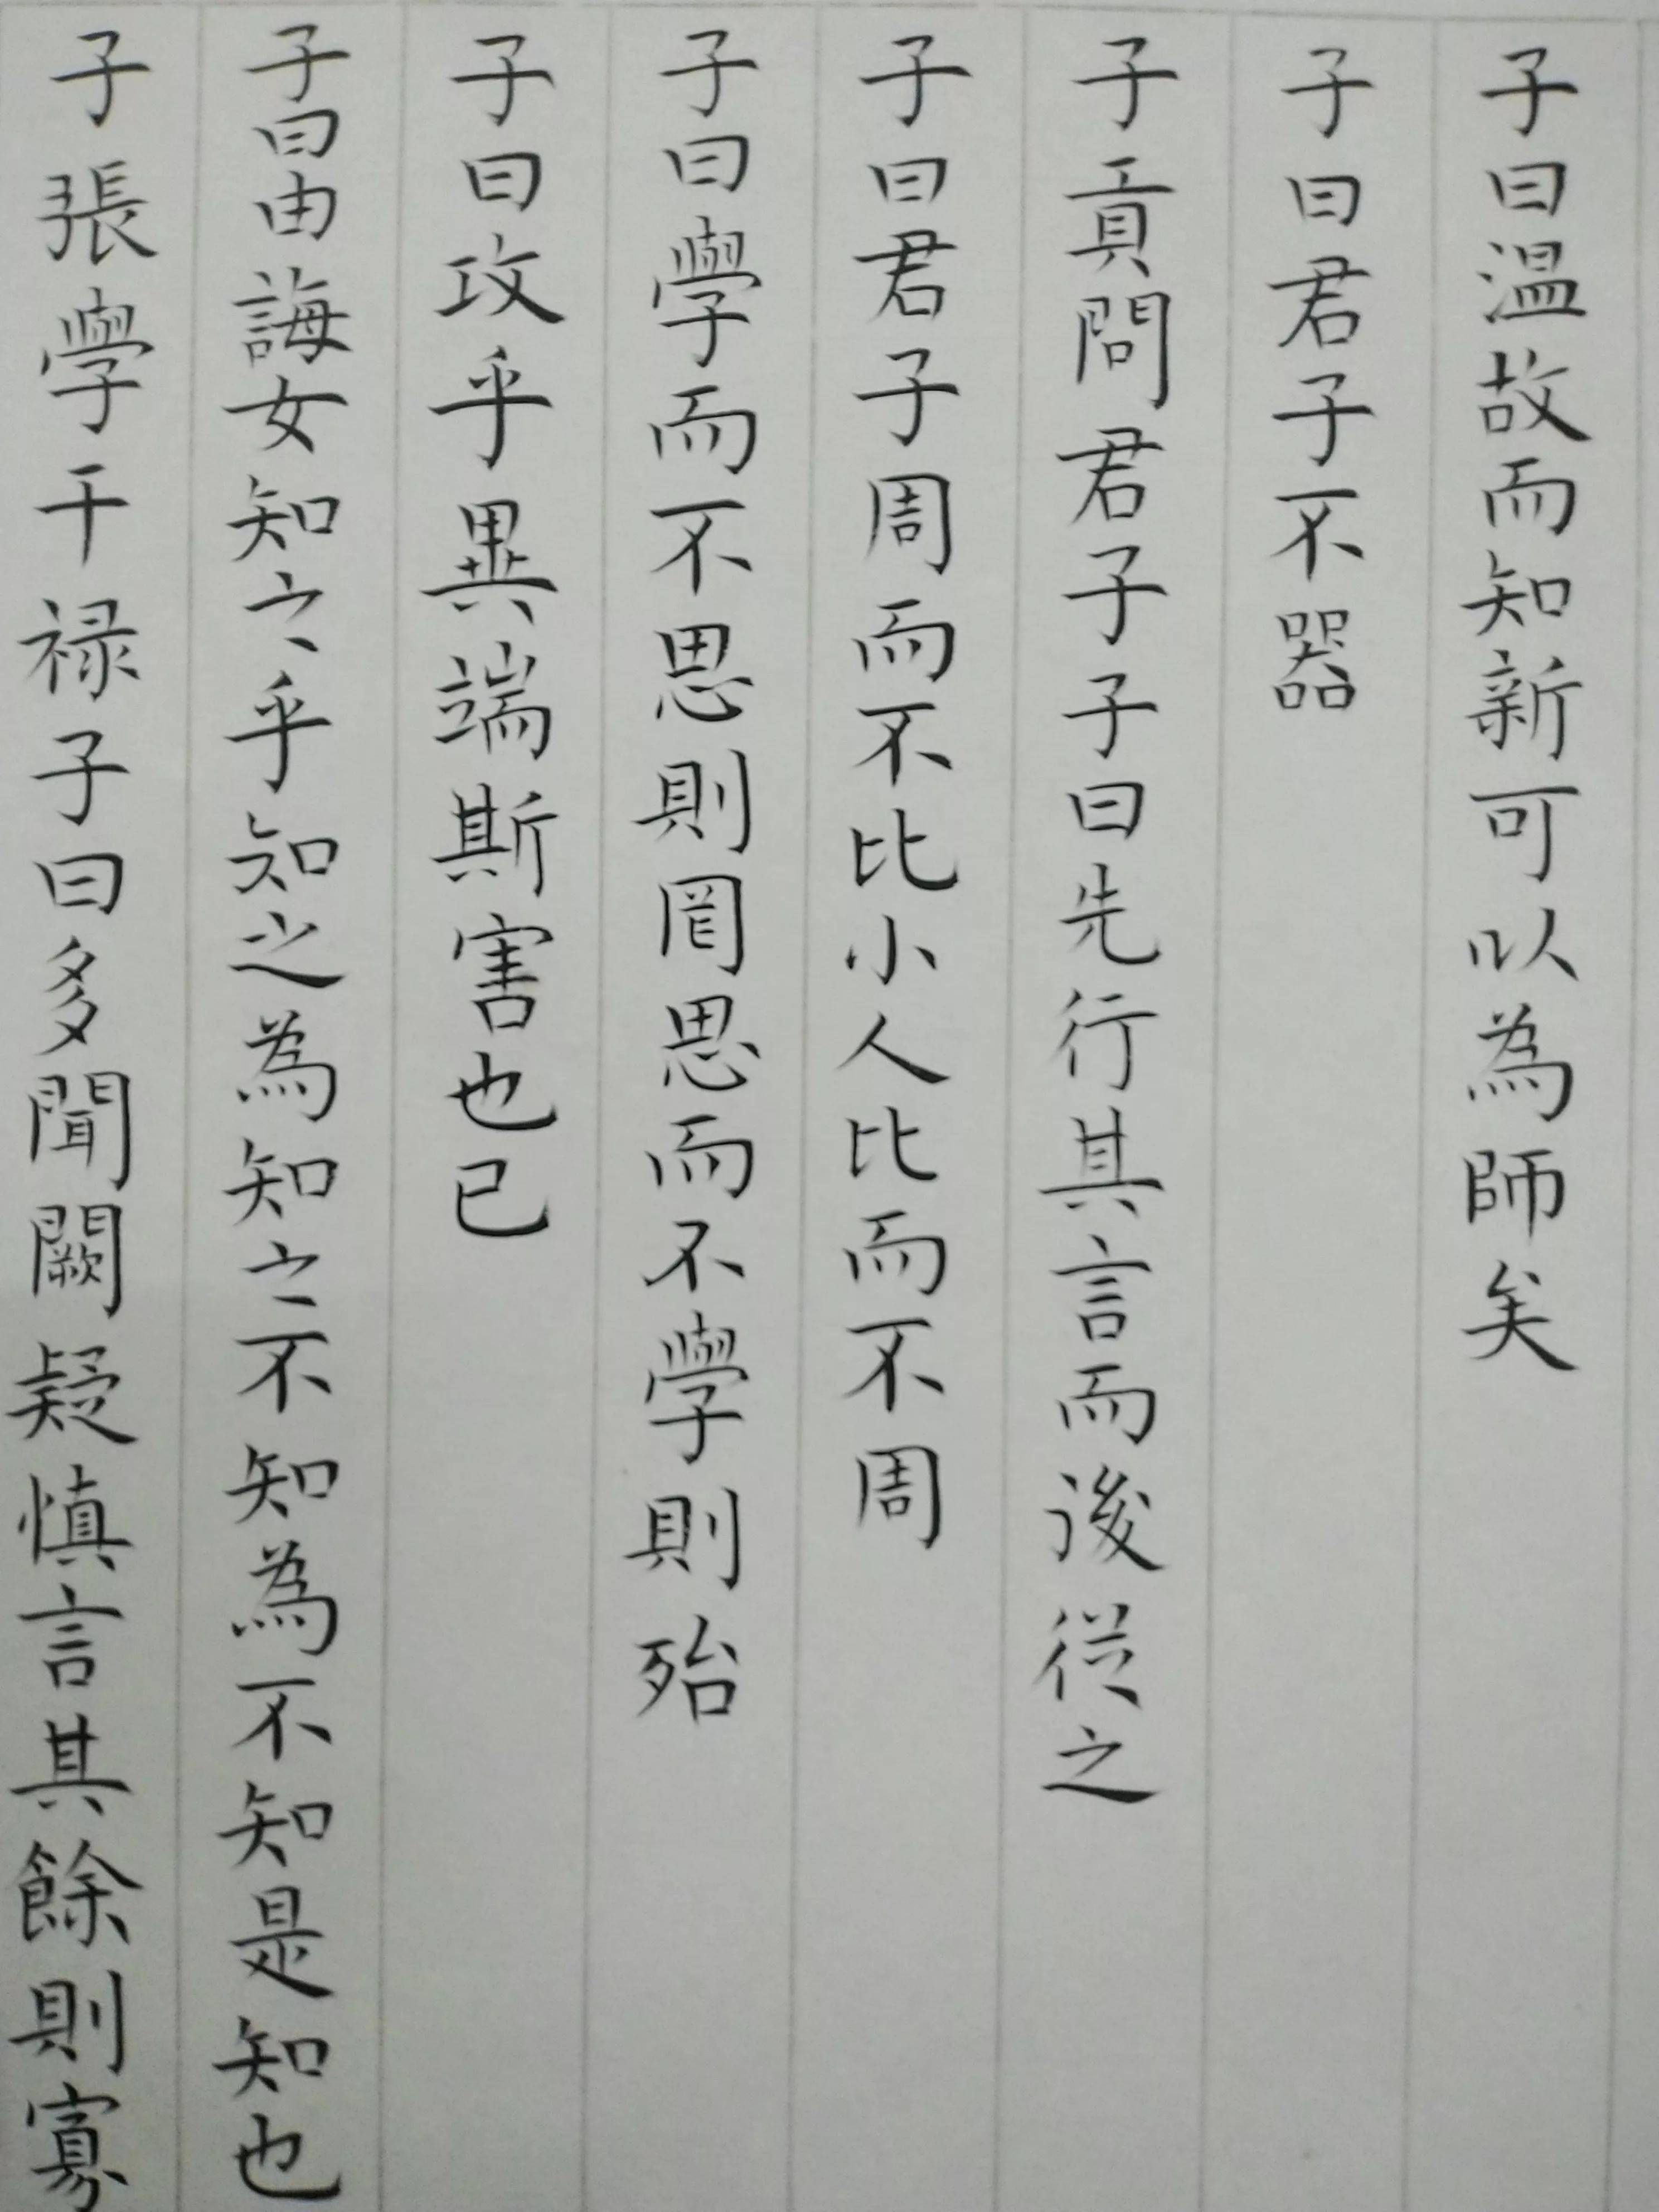 子曰温故而知新可以為師矣
子曰君子不器
子貢問君子子曰先行其言而後從之
子曰君子周而不比小人比而不周
子曰學而不思則罔思而不學則殆
子曰攻乎異端斯害也已
子曰由誨女知之乎知之為知之不知為不知是知也
子張學干禄子曰多聞闕疑慎言其餘則寡